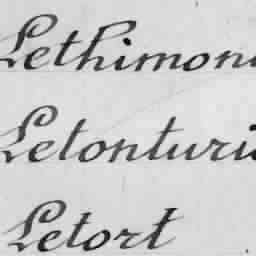 Lethimon
Letonturi
Letort